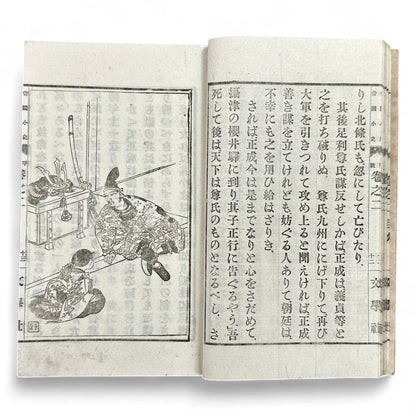 りし北條氏も忽にして亡びたり、
其後足利尊氏謀反せしかば正成は義貞等と
之を打ち破りぬ、尊氏九州ににげ下りて再び
大軍を引きつれて攻め上ると聞えければ正成
善き謀を立てけれども妨ぐる人ありて朝廷は、
不幸にも之を用ひ給はざりき、
されば正成今は是までなりと心をさだめて、
攝津の櫻井驛に到り其子正行に告ぐるやう、吾
死して後は天下は尊氏のものとなるべし、さ
卷之二
十二
文學社